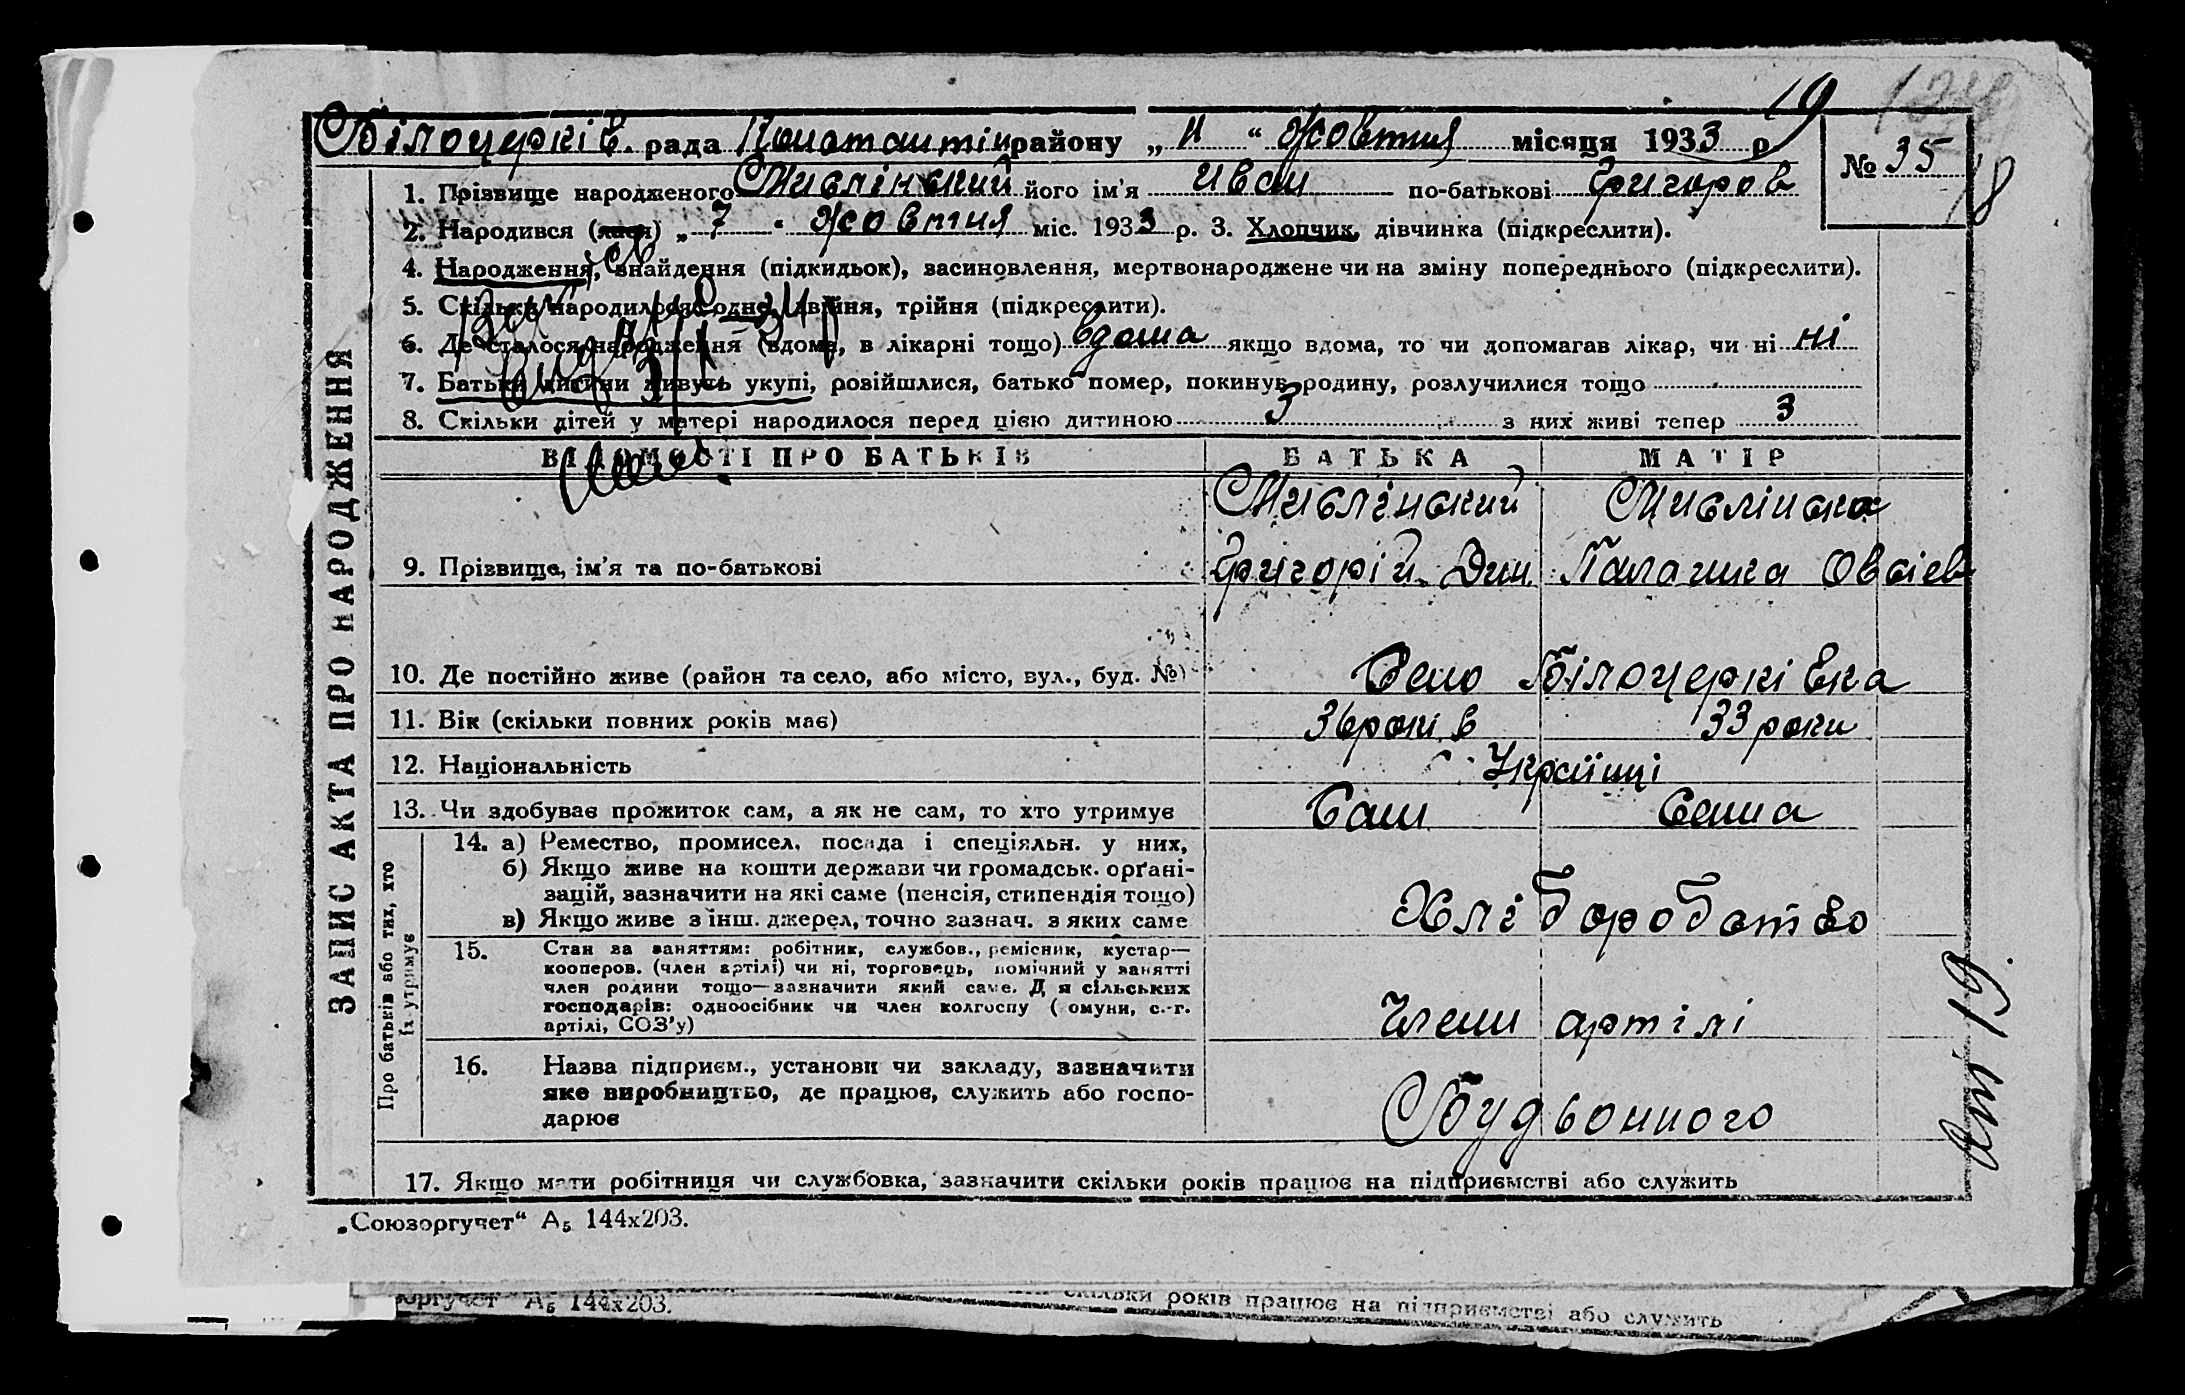 19
Білоцерків. рада районy „ 11 “ Жовтня місяця 1933 р
№ 35
18
1. Прізвище народженого його ім'я Иван по-батькові Григоров
2. Народився (лася) „ 7 “ Жовтня міс. 1933 р. 3. Хлопчик, дівчинка (підкреслити).
4. Народження, знайдення (підкидьок), засиновлення, мертвонароджене чи на зміну попереднього (підкреслити).
5. Скільки народилося: одне, двійня, трійня (підкреслити).
6. Де сталося народження (вдома, в лікарні тощо) вдома якщо вдома, то чи допомагав лікар, чи ні ні
7. Батьки дитини живуть укупі, ровійшлися, батько помер, покинув родину, розлучилися тощо
8. Скільки дітей у матері народилося перед цією дитиною 3 з них живі тепер 3
ЗАПИС АКТА ПРО НАРОДЖЕННЯ
ВІДОМОСТІ ПРО БАТЬКІВ БАТЬКА МАТІР
9. Прізвище, ім'я та по-батькові
Григорій Дим. Палагика Овсіев
10. Де постійно живе (район та село, або місто, вул., буд. №) Село Білоцерківка
11. Вік (скільки повних років має) 36 років 33 роки
12. Національність Українці
13. Чи здобуває прожиток сам, а як не сам, то хто утримує Сам Сама
Про батьків або тих, хто їх утримує
14. а) Ремество, промисел, посада і спеціяльн. у них,
б) Якщо живе на кошти держави чи громадськ. орґані-
зацій, зазначити на які саме (пенсія, стипендія тощо)
в) Якщо живе з інш. джерел, точно зазнач. з яких саме
Хліборобство
15. Стан за заняттям: робітник, службов., ремісник, кустар—
кооперов. (член артілі) чи ні, торговець, помічний у занятті
член родини тощо—зазначити який саме. Для сільських
господарів: одноосібник чи член колгоспу (комуни, с.-г.
артілі, СОЗ'у)
Члени артілі
16. Назва підприєм., установи чи закладу, зазначити
яке виробництво, де працює, служить або госпо-
дарює
Будьонного
17. Якщо мати робітниця чи службовка, зазначити скільки років працює на підприємстві або служить
„Союзоргучет“ А₅ 144х203.
оргучет“ А₅ 144х203.
скільки років працює на підприємстві або служить